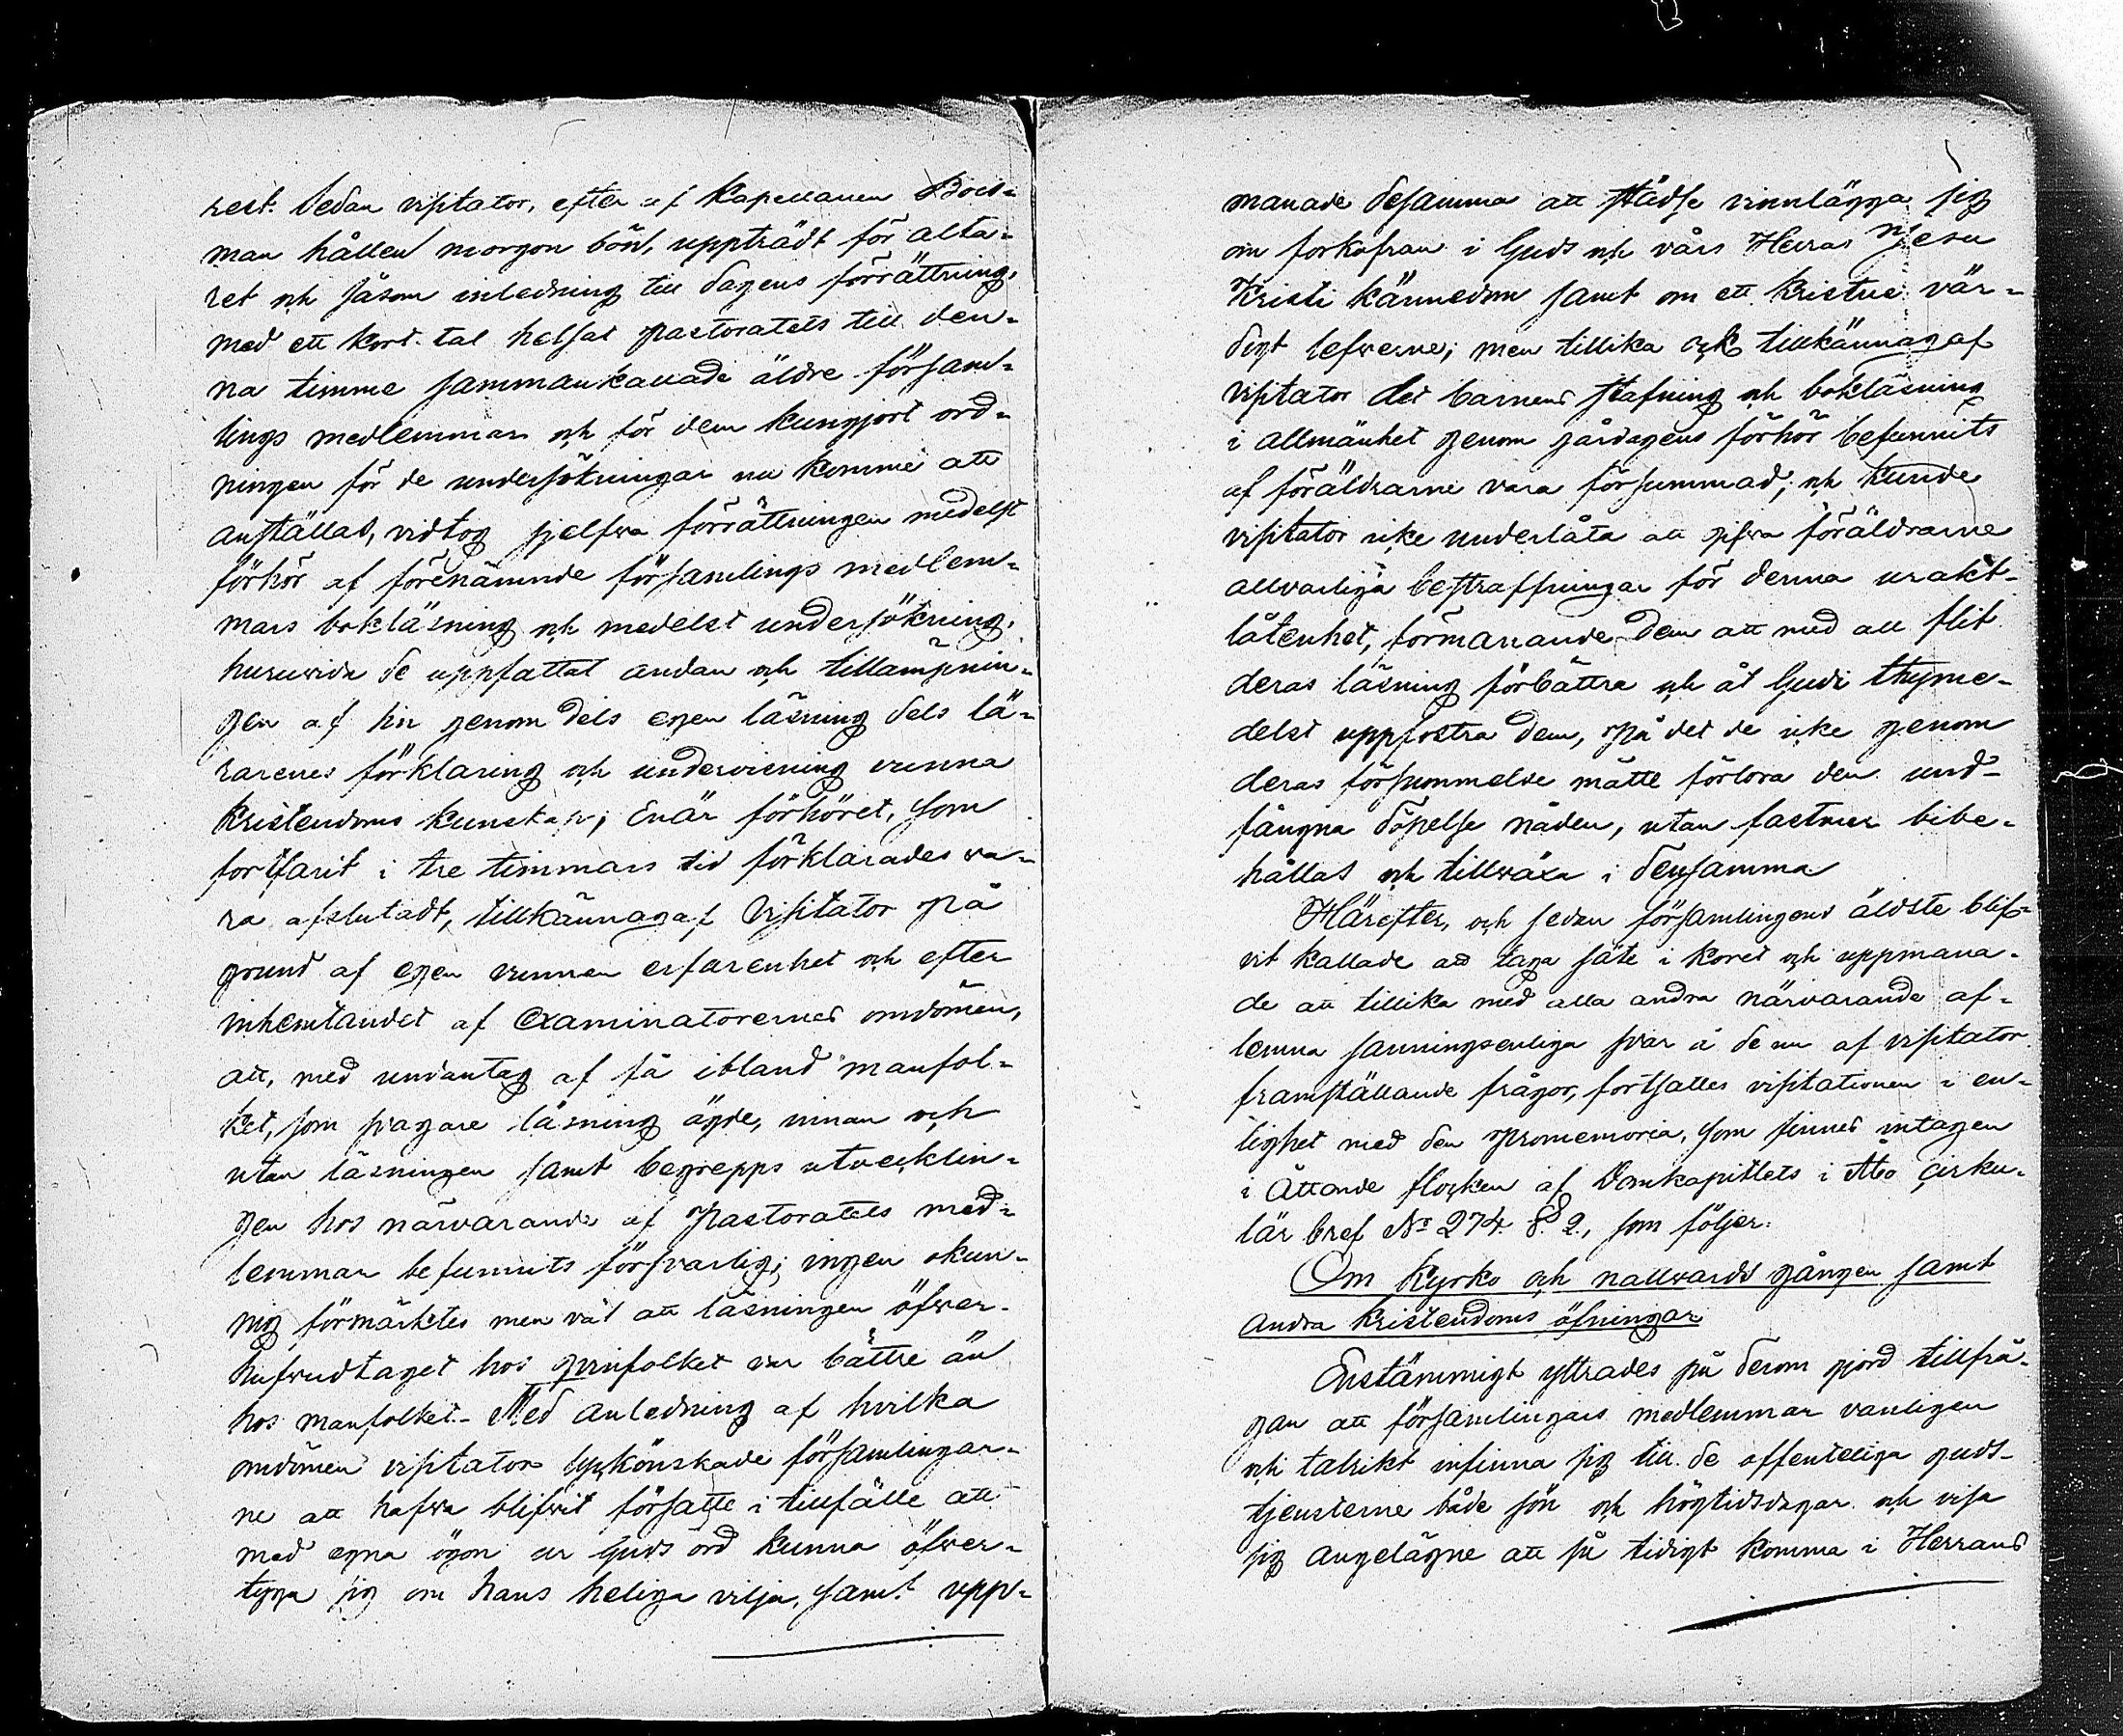 rest. Sedan visitator, efter af Kapellanen Bois-
man hållen morgon bön, uppträdt för alta-
ret och såsom inledning till dagens förrättning,
med ett kort tal helsat pastoratets till den-
na timme sammankallade äldre försam-
lings medlemmar och för dem kungjort ord-
ningen för de undersökningar nu komme att
anställas, vidtog sjelfva förrättningen medelst
förhör af förenämnde församlings medlem-
mars bokläsning och medelst undersökning,
huruvida de uppfattat andan och tillämpnin-
gen af hin genom dels egen läsning dels lä-
rarenes förklaring och undervisning vunna
kristendoms kunskap; Enär förhöret, som
fortfarit i tre timmars tid förklarades va-
ra afslutadt, tillkännagaf Visitator på
grund af egen vunnen erfarenhet och efter
inhemtandet af Examinatorernes omdömen,
att, med undantag af få ibland manfol-
ket, som svagare läsning ägde, innan och
utan läsningen samt begrepps utvecklin-
gen hos närvarande af Pastoratets med-
lemmar befunnits försvarlig; ingen okun-
nig förmärktes men väl att läsningen öfver-
hufwudtaget hos qvinfolket var bättre än
hos manfolket. Med anledning af hvilka
omdömen visitator lyckönskade församlingar-
ne att hafva blifvit försatte i tillfälle att
med egna ögon ur Guds ord kunna öfver-
tyga sig om hans heliga vilja, samt upp-
manade desamma att städse vinnlägga sig
om förkofran i Guds och vårs Herras Jesu
Kristi kännedom samt om ett kristne vär-
digt lefverne; men tillika ock tillkännagaf
visitator det barnens stafning och bokläsning
i allmänhet genom gårdagens förhör befunnits
af föräldrarne vara försummad; och kunde
visitator icke underlåta att gifva föräldrarne
allvarliga bestraffningar för denna urakt-
låtenhet, förmanande dem att med all flit
deras läsning förbättra och åt Gudi thyme-
delst uppfostra dem, på det de icke genom
deras försummelse måtte förlora den und-
fångna döpelse nåden, utan fastmer bibe-
hållas och tillväxa i densamma
Härefter, och sedan församlingens äldste blif-
vit kallade att taga säte i koret och uppmana-
de att tillika med alla andra närvarande af-
lemna sanningsenliga svar å de nu af visitator
framställande frågor, fortsattes visitationen i en-
lighet med den promemoria, som finnes intagen
i Åttonde flocken af Domkapitlets i Åbo cirku-
lär bref No 274. § 2., som följer:
Om Kyrko och nattvards gången samt
andra kristendoms öfningar
Enstämmigt yttrades på derom gjord tillfrå-
gan att församlingars medlemmar vanligen
och talrikt infinna sig till de offentliga guds-
tjensterne både sön och högtidsdagar och visa
sig angelägne att så tidigt komma i Herrans